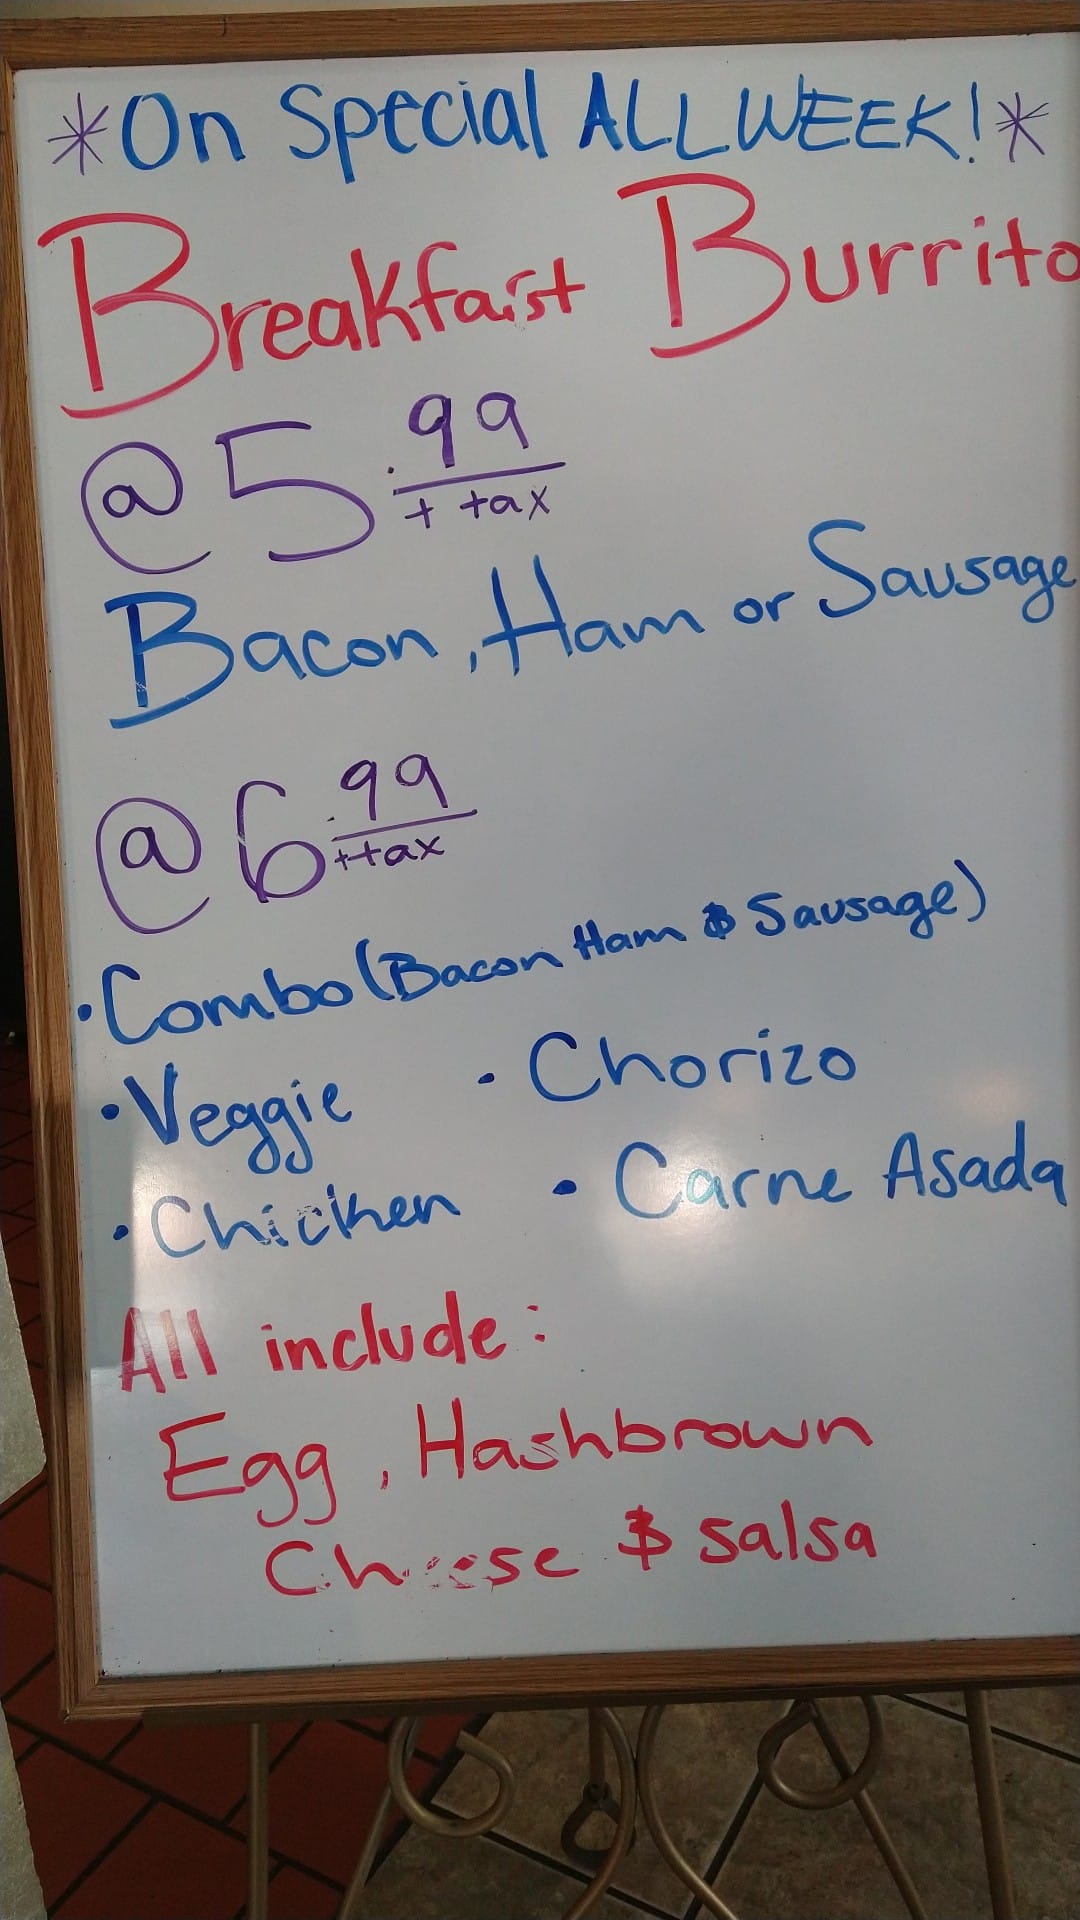 *On Special ALL WEEK!*
Breakfast Burrito
@ 5.99
+ tax
Bacon, Ham or Sausage
@ 6.99
+tax
·Combo (Bacon Ham & Sausage)
·Veggie · Chorizo
·Chicken · Carne Asada
All include:
Egg, Hashbrown
Cheese & salsa